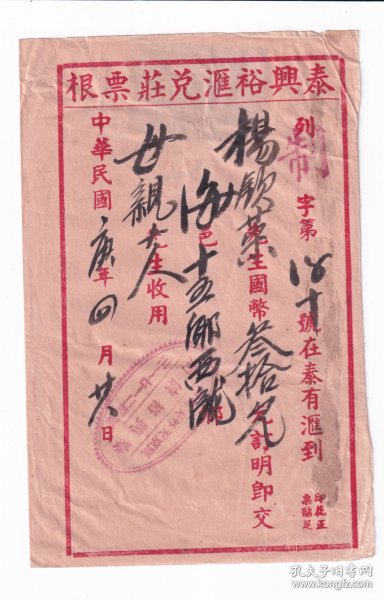 泰興裕滙兌莊票根
列制字第 號在泰有滙到
楊欽 先生國幣叁拾元 訂明即交
海邑十五鄉西隴鄉
母親大人先生收用
中華民國庚年四月廿 日
印花正
票貼足
孔夫子旧书网